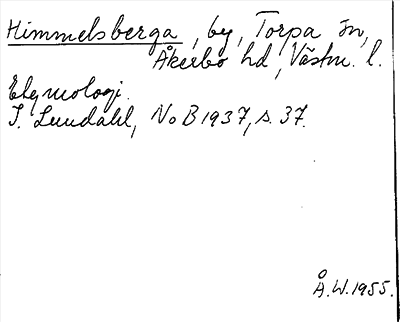 Himmelsberga, by, Torpa sn,
Åkerbo hd, Västm. l.
Etymologi.
I. Lundahl, NoB 1937, s. 37.
Å.W. 1955.